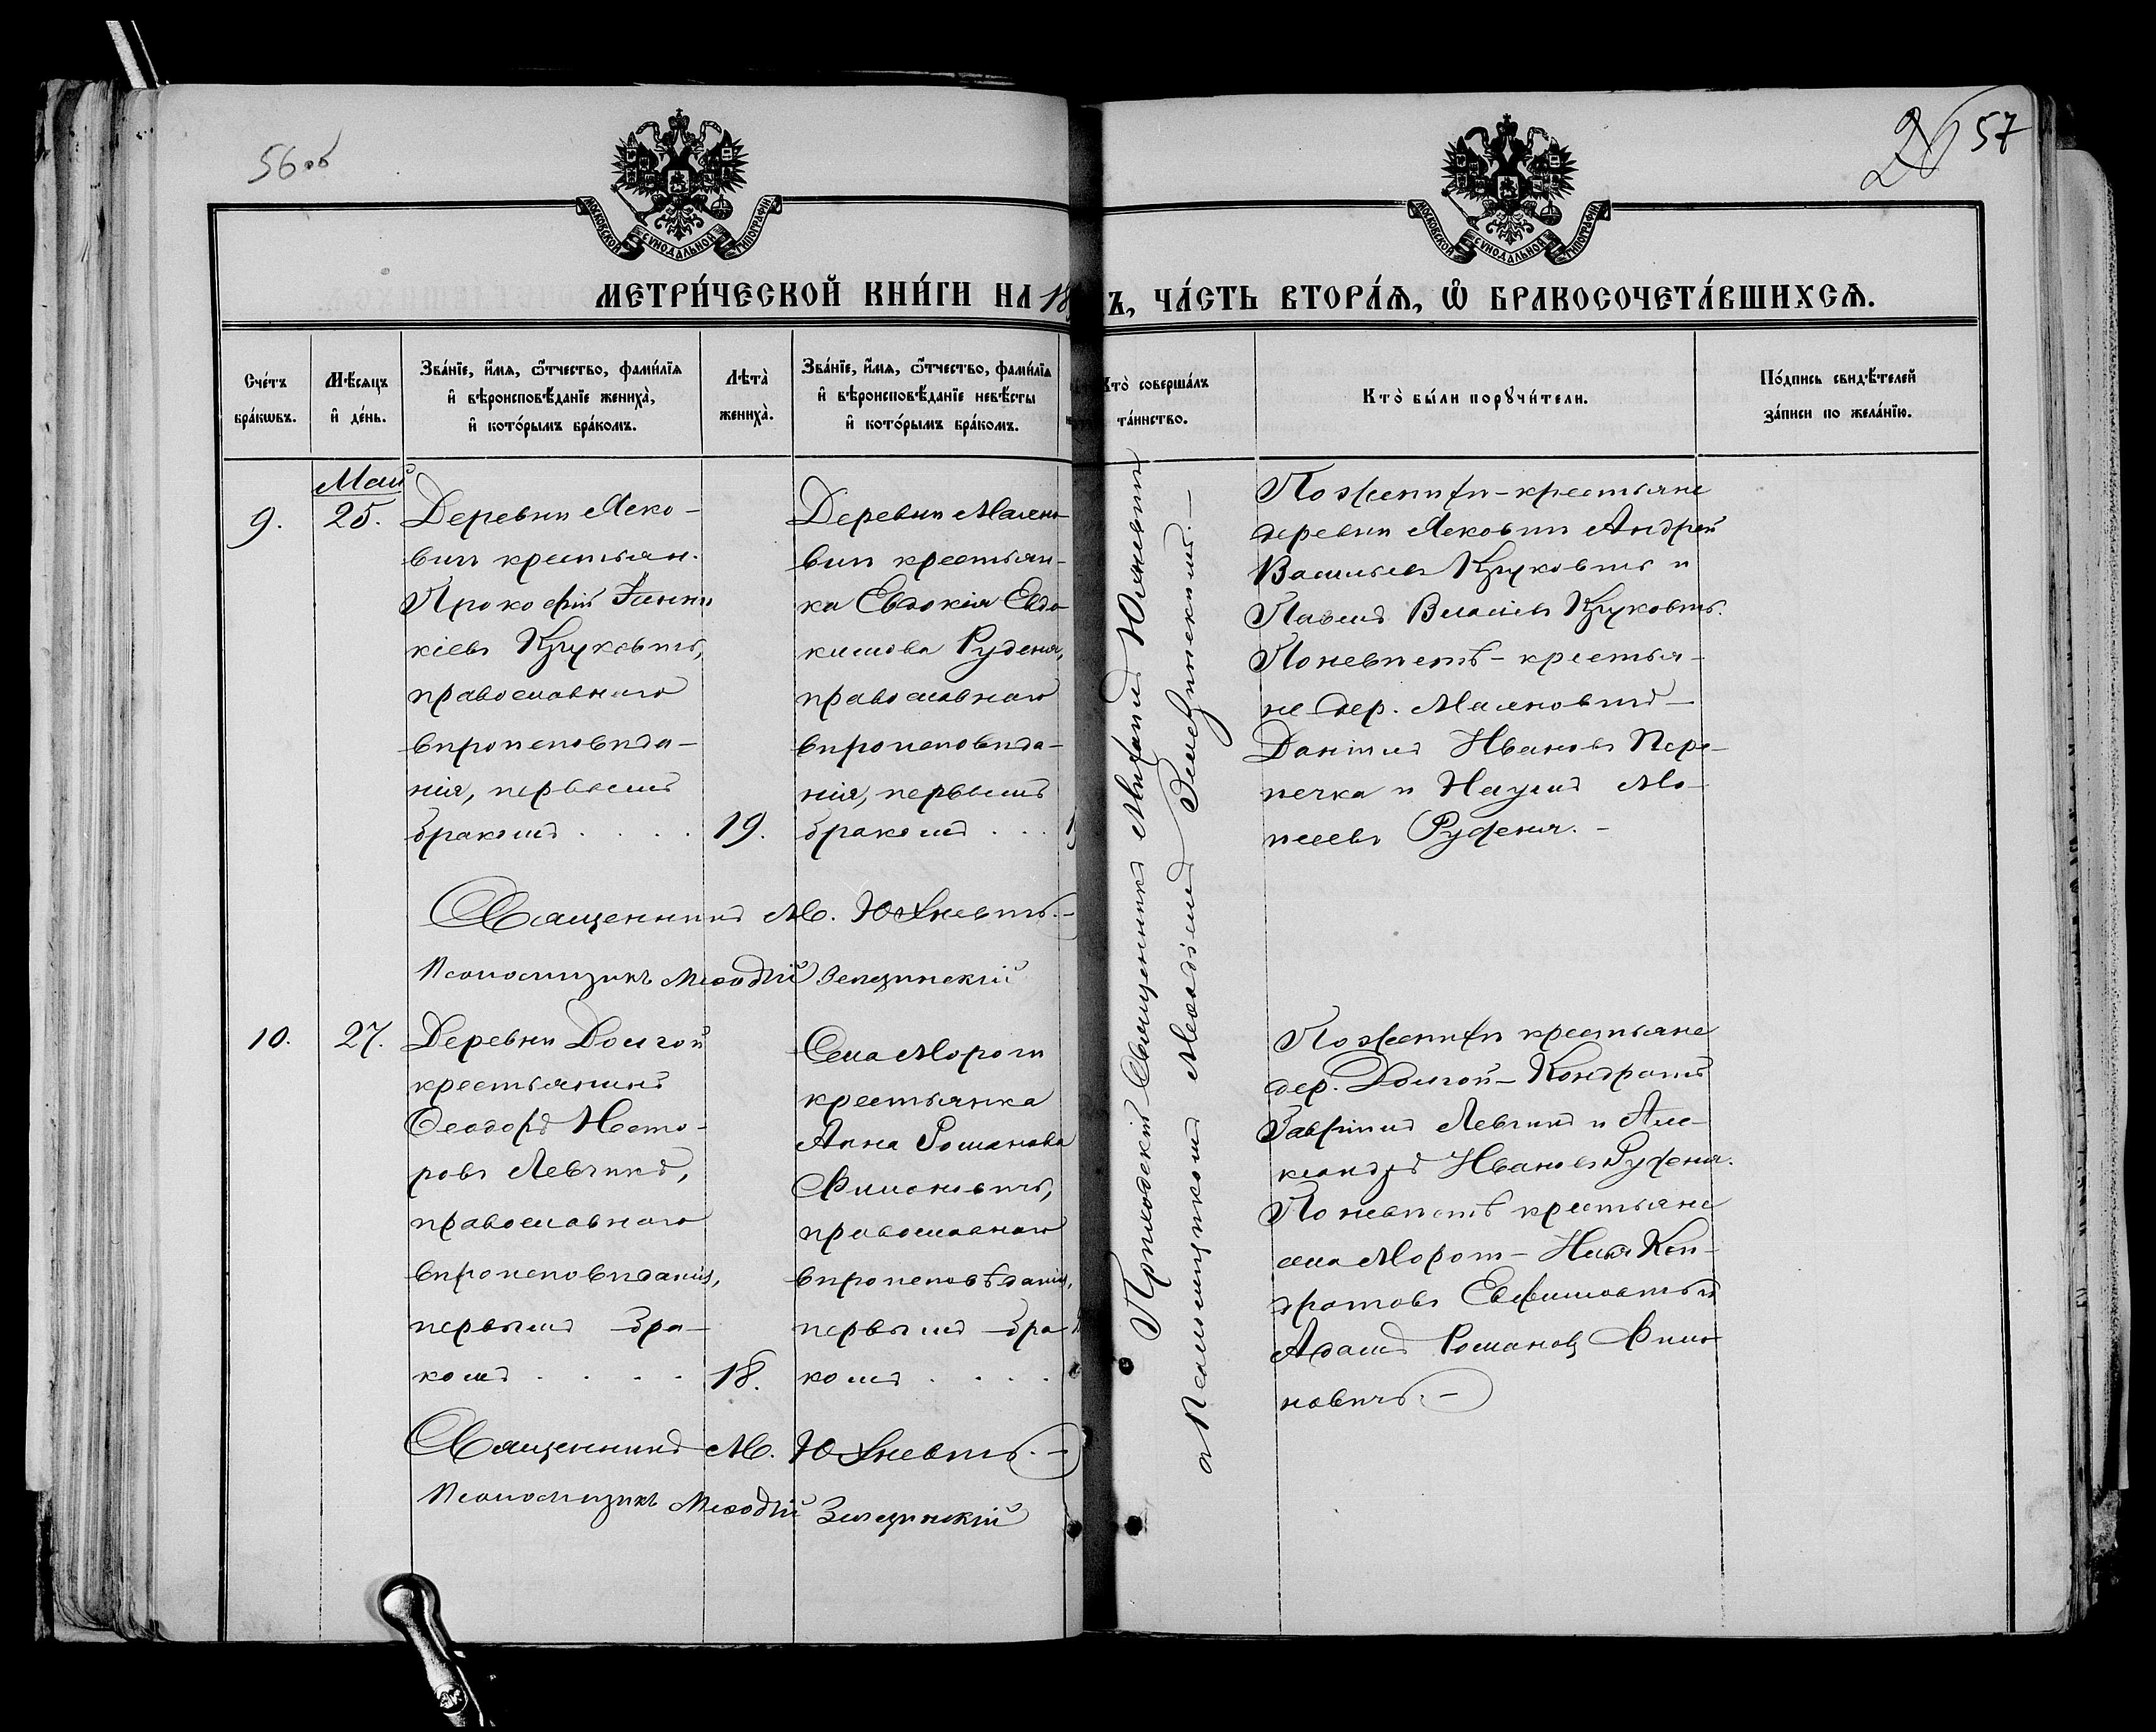 56 об
26 57
МОСКОВСКОЙ СѴНОДАЛЬНОЙ ТИПОГРАФІИ
МОСКОВСКОЙ СѴНОДАЛЬНОЙ ТИПОГРАФІИ
МЕТРИ́ЧЕСКОЙ КНИ́ГИ НА 18 Ъ, ЧА́СТЬ ВТОРА́Ѧ, Ѽ БРАКОСОЧЕТА́ВШИХСѦ.
Сче́тъ
бра́кωвъ.
Мѣ́сѧцъ
и҆ де́нь.
Зва́нїе, и҆́мѧ, ѻ҆́тчество, фами́лїѧ
и҆ вѣроисповѣ́данїе жениха̀,
и҆ кото́рымъ бра́комъ.
Лѣта̀
жениха̀.
Зва́нїе, и҆́мѧ, ѻ҆́тчество, фами́лїѧ
и҆ вѣроисповѣ́данїе невѣ́сты
и҆ кото́рымъ бра́комъ.
Кто̀ соверша́лъ
та́инство.
Кто̀ бы́ли порꙋчи́тели.
По́дпись свидѣ́телей
за́писи по жела́нїю.
Май
9.
25.
Деревни Леко-
вич крестьян.
Прокофій
кіевъ Круковичъ,
православнаго
вѣроисповѣда-
нія, первымъ
бракомъ . . . .
19.
Деревни Малено-
вич крестьян-
ка Евдокія Евдо-
кимова Руденя,
православнаго
вѣроисповѣда-
нія, первымъ
бракомъ . . .
Приходскій Священникъ Михаилъ Юхневичъ
съ Псаломщикомъ Меѳодіемъ Зенезинскимъ. —
По женихѣ - крестьяне
деревни Лековичъ Андрей
Васильевъ Круковичъ и
Павелъ Власіевъ Круковичъ.
По невѣстѣ - крестья-
не дер. Маленовичъ —
Даніилъ Ивановъ Пере-
печка и Наумъ Мо-
исеевъ Руденя. -
Священникъ М. Юхневичъ. -
Псаломщикъ Меѳодій
10.
27.
Деревни Долгой
крестьянинъ
Ѳеодоръ Несто-
ровъ Левчикъ,
православнаго
вѣроисповѣданія,
первымъ бра-
комъ . . . .
18.
Села Морочи
крестьянка
Анна Романова
Филоновичъ,
православнаго
вѣроисповѣданія,
первымъ бра-
комъ . . . .
По женихѣ крестьяне
дер. Долгой - Кондратъ
Гавріилъ Левчикъ и Але-
ксандръ Ивановъ Руденя.
По невѣстѣ крестьяне
села Мороч - Илья Кон-
дратовъ Евфимовичъ и
Адамъ Романовъ Фило-
новичъ. -
Священникъ М. Юхневичъ. -
Псаломщикъ Меѳодій